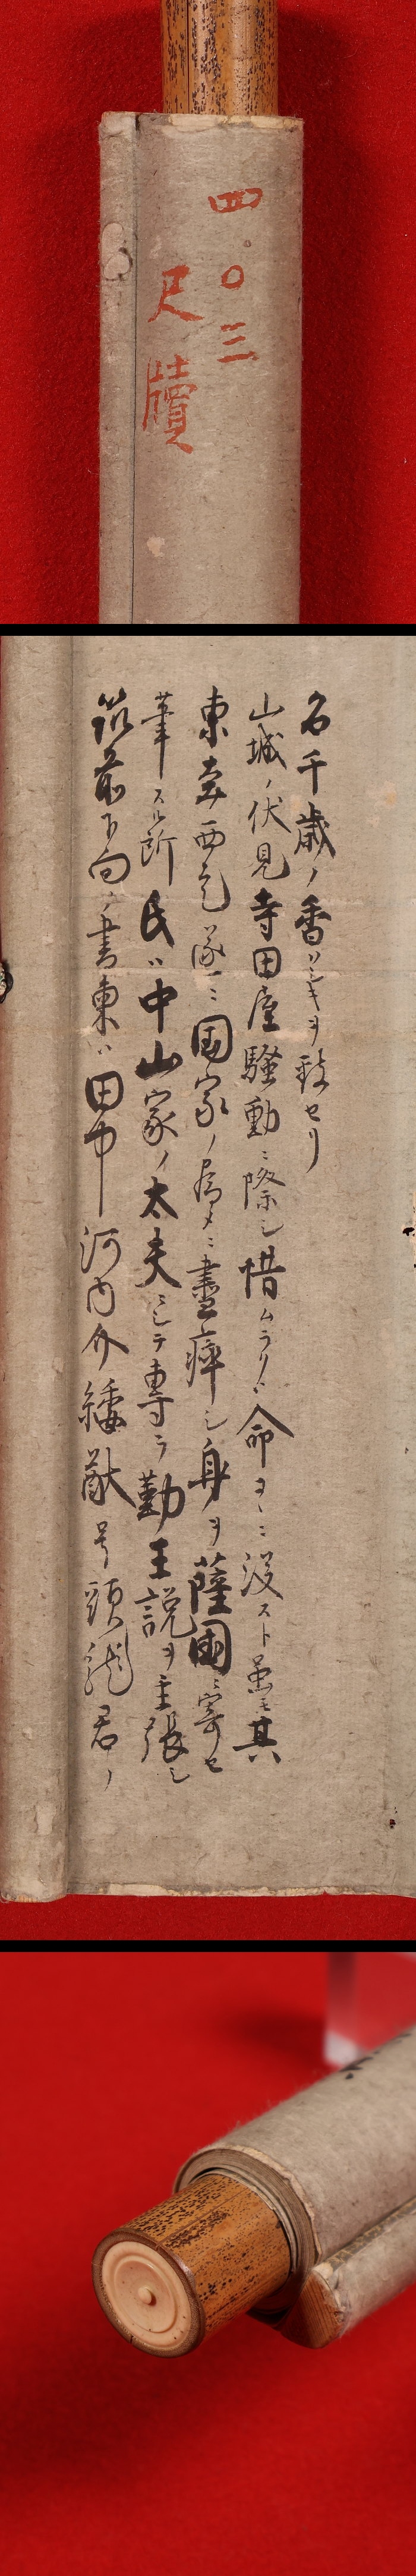 四.〇三
尺牘
筑前下向ノ書柬ハ田中河内介綏猷号龍君ノ
筆スル所氏ハ中山家ノ太夫ニシテ専ラ勤王説ヲ主張シ
東奔西走遂ニ国家ノ為メニ盡瘁シ身ヲ薩國ニ寄セ
山城ノ伏見寺田屋騒動ニ際シ惜ムラクハ命ヲニ没スト虽モ其
名千歳ノ香シキヲ致セリ